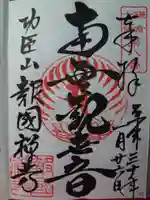 奉拝
平成三十年
月廿六日
南無観音
功臣山 報國禅寺